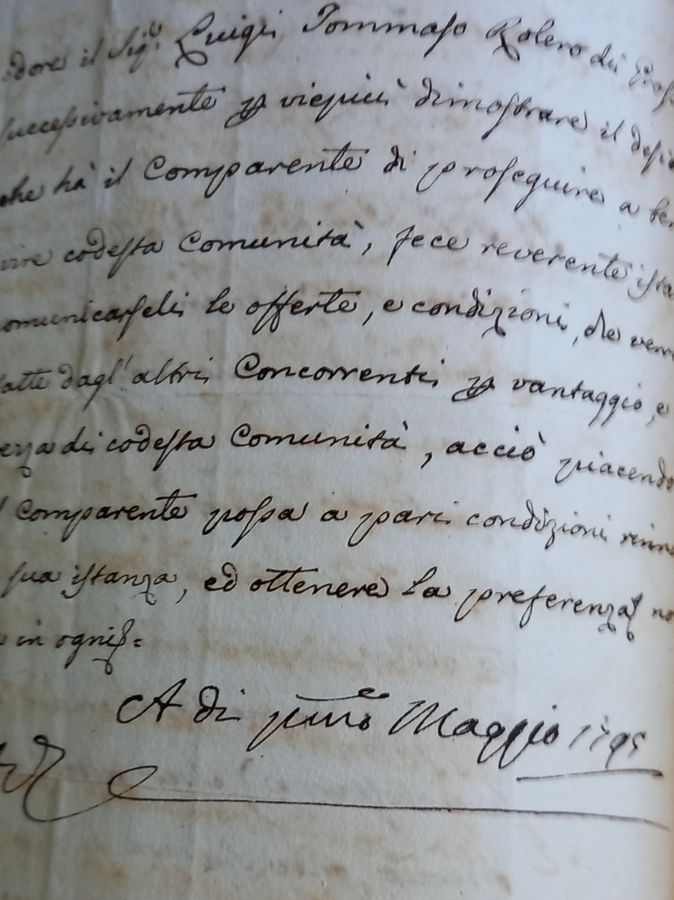 dore il Sig.r Luigi Tommaso Rolero di
successivamente p viepiù dimostrare il
che hà il Comparente di proseguire a
codesta Comunità, fece reverente
comunicarseli le offerte, e condizioni, che
fatte dagl' altri Concorrenti p vantaggio, e
di codesta Comunità, acciò piacendo
Comparente possa a pari condizioni
sua istanza, ed ottenere la preferenza
in ogni
A di primo Maggio 1795